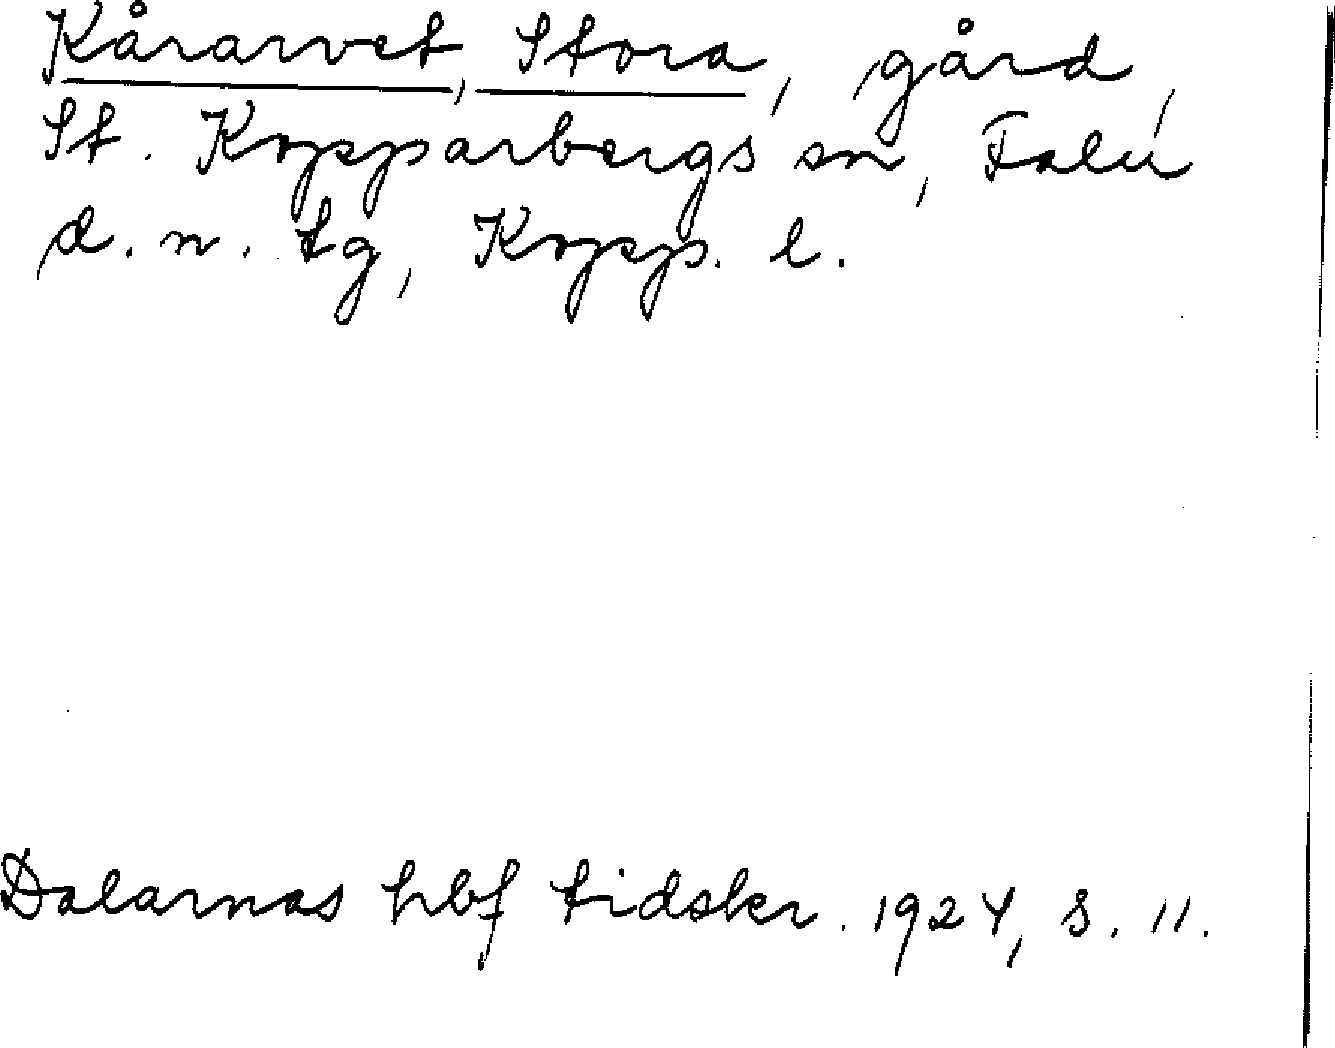 Kårarvet, Stora, gård,
St. Kopparbergs sn, Falu
d. n. tg, Kopp. l.
Dalarnas hbf tidskr. 1924, s. 11.